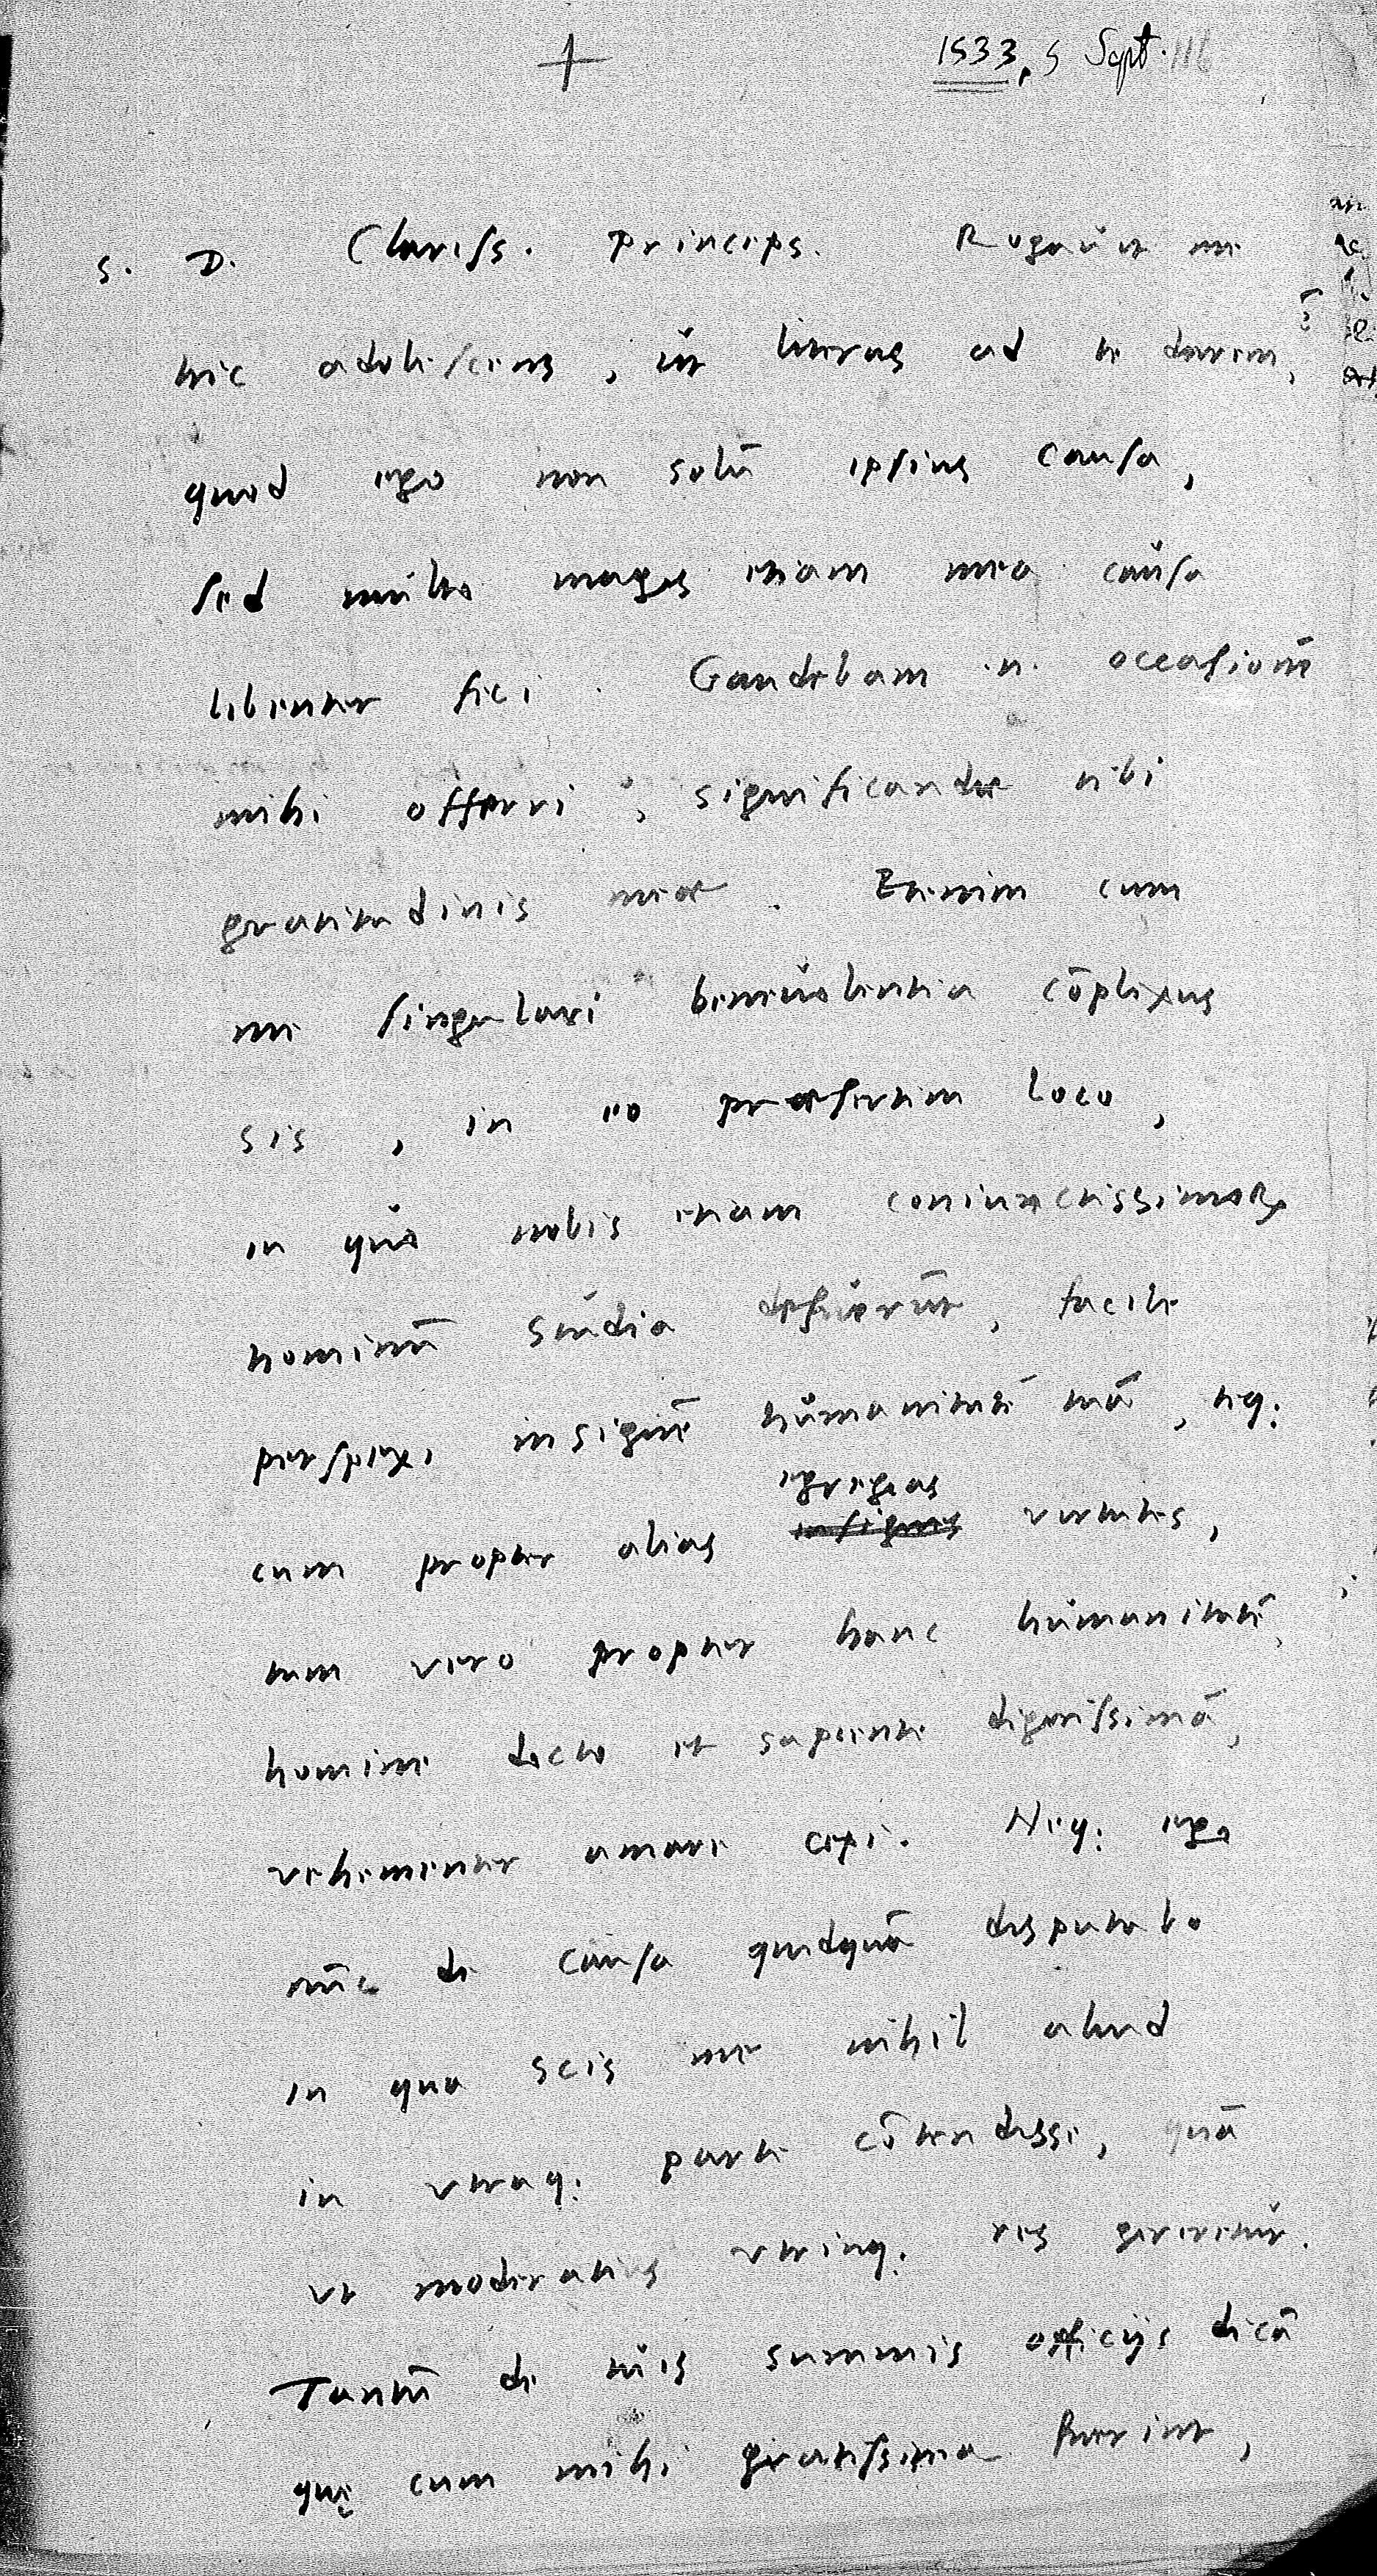 + 1533, 5 Sept. 116
S. D. Clariss. princeps. Rogauit me
hic adolescens, ut literas ad te darem,
quod ego non solū ipsius causa,
sed multo magis etiam mea causa
libenter feci. Gaudebam .n. occasionē
mihi offerri, significandae tibi
gratitudinis meae. Etenim cum
me singulari beneuolentia cōplexus
sis, in eo praesertim loco,
in quo nobis etiam coniunctissimorꝝ
hominū studia defuerūt, facile
perspexi insignē humanitatē tuā, teq;
egregias
cum propter alias insignes virtutes,
tum vero propter hanc humanitatē,
homine docto et sapiente dignissimā,
vehementer amare cepi. Neq; ego
nūc de causa quidquā disputabo
in qua scis me nihil aliud
in vtraq; parte cōtendisse, quā
vt moderatius vtrinq; res gereretur.
Tantū de tuis summis officijs dicā
quę cum mihi gratissima fuerint,